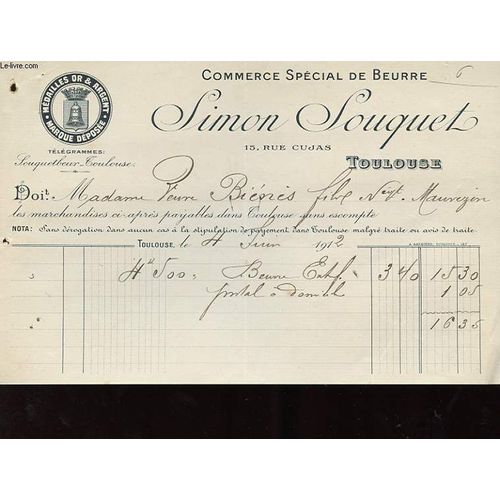 Le-livre.com
COMMERCE SPÉCIAL DE BEURRE
6
MÉDAILLES OR & ARGENT
MARQUE DÉPOSÉE
Simon Souquet
15, RUE CUJAS
TOULOUSE
TÉLÉGRAMMES:
Souquetbeur-Toulouse.
Doit Madame Veuve
les marchandises ci-après payables dans Toulouse sans escompte
NOTA: Sans dérogation dans aucun cas à la stipulation de payement dans Toulouse malgré traite ou avis de traite.
TOULOUSE, le 4 Juin 1912
4 K 500 = Beurre Extf. 3 40 15 30
postal à domicile 1 05
16 35